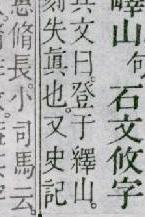 嶧山 句 石文攸字
其文曰。登于繹山。
刻失眞也。又史記
脩長。小司馬云。